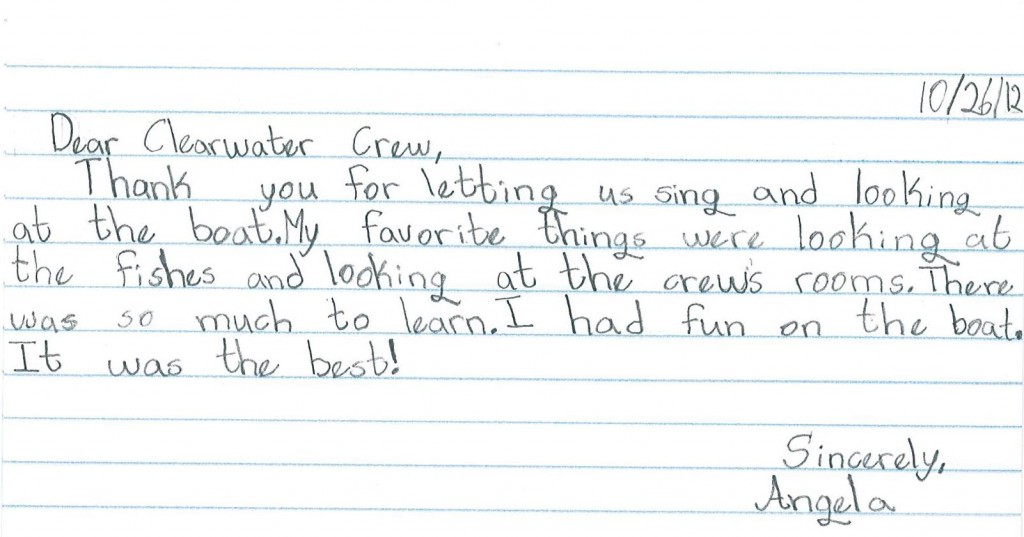 10/26/12
Dear Clearwater Crew,
Thank you for letting us sing and looking
at the boat. My favorite things were looking at
the fishes and looking at the crew's rooms. There
was so much to learn. I had fun on the boat.
It was the best!
Sincerely,
Angela